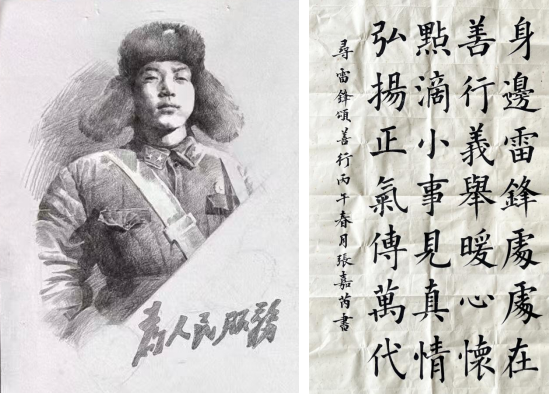 为人民服務
身邊雷鋒處處在
善行義舉暖心懷
點滴小事見真情
弘揚正氣傳萬代
尋雷鋒頌善行丙午春月張嘉芮書